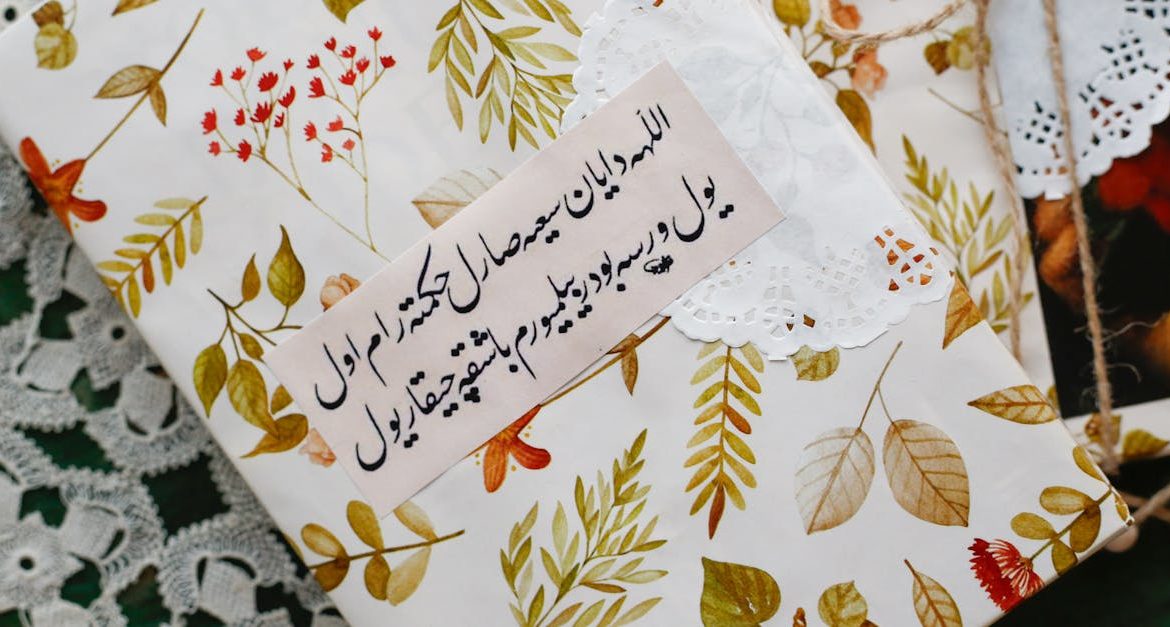 اللهه دایان سعیه صارل حکمته رام اول
یول ورسه بودر بیلمیورم باشقه چیقار یول